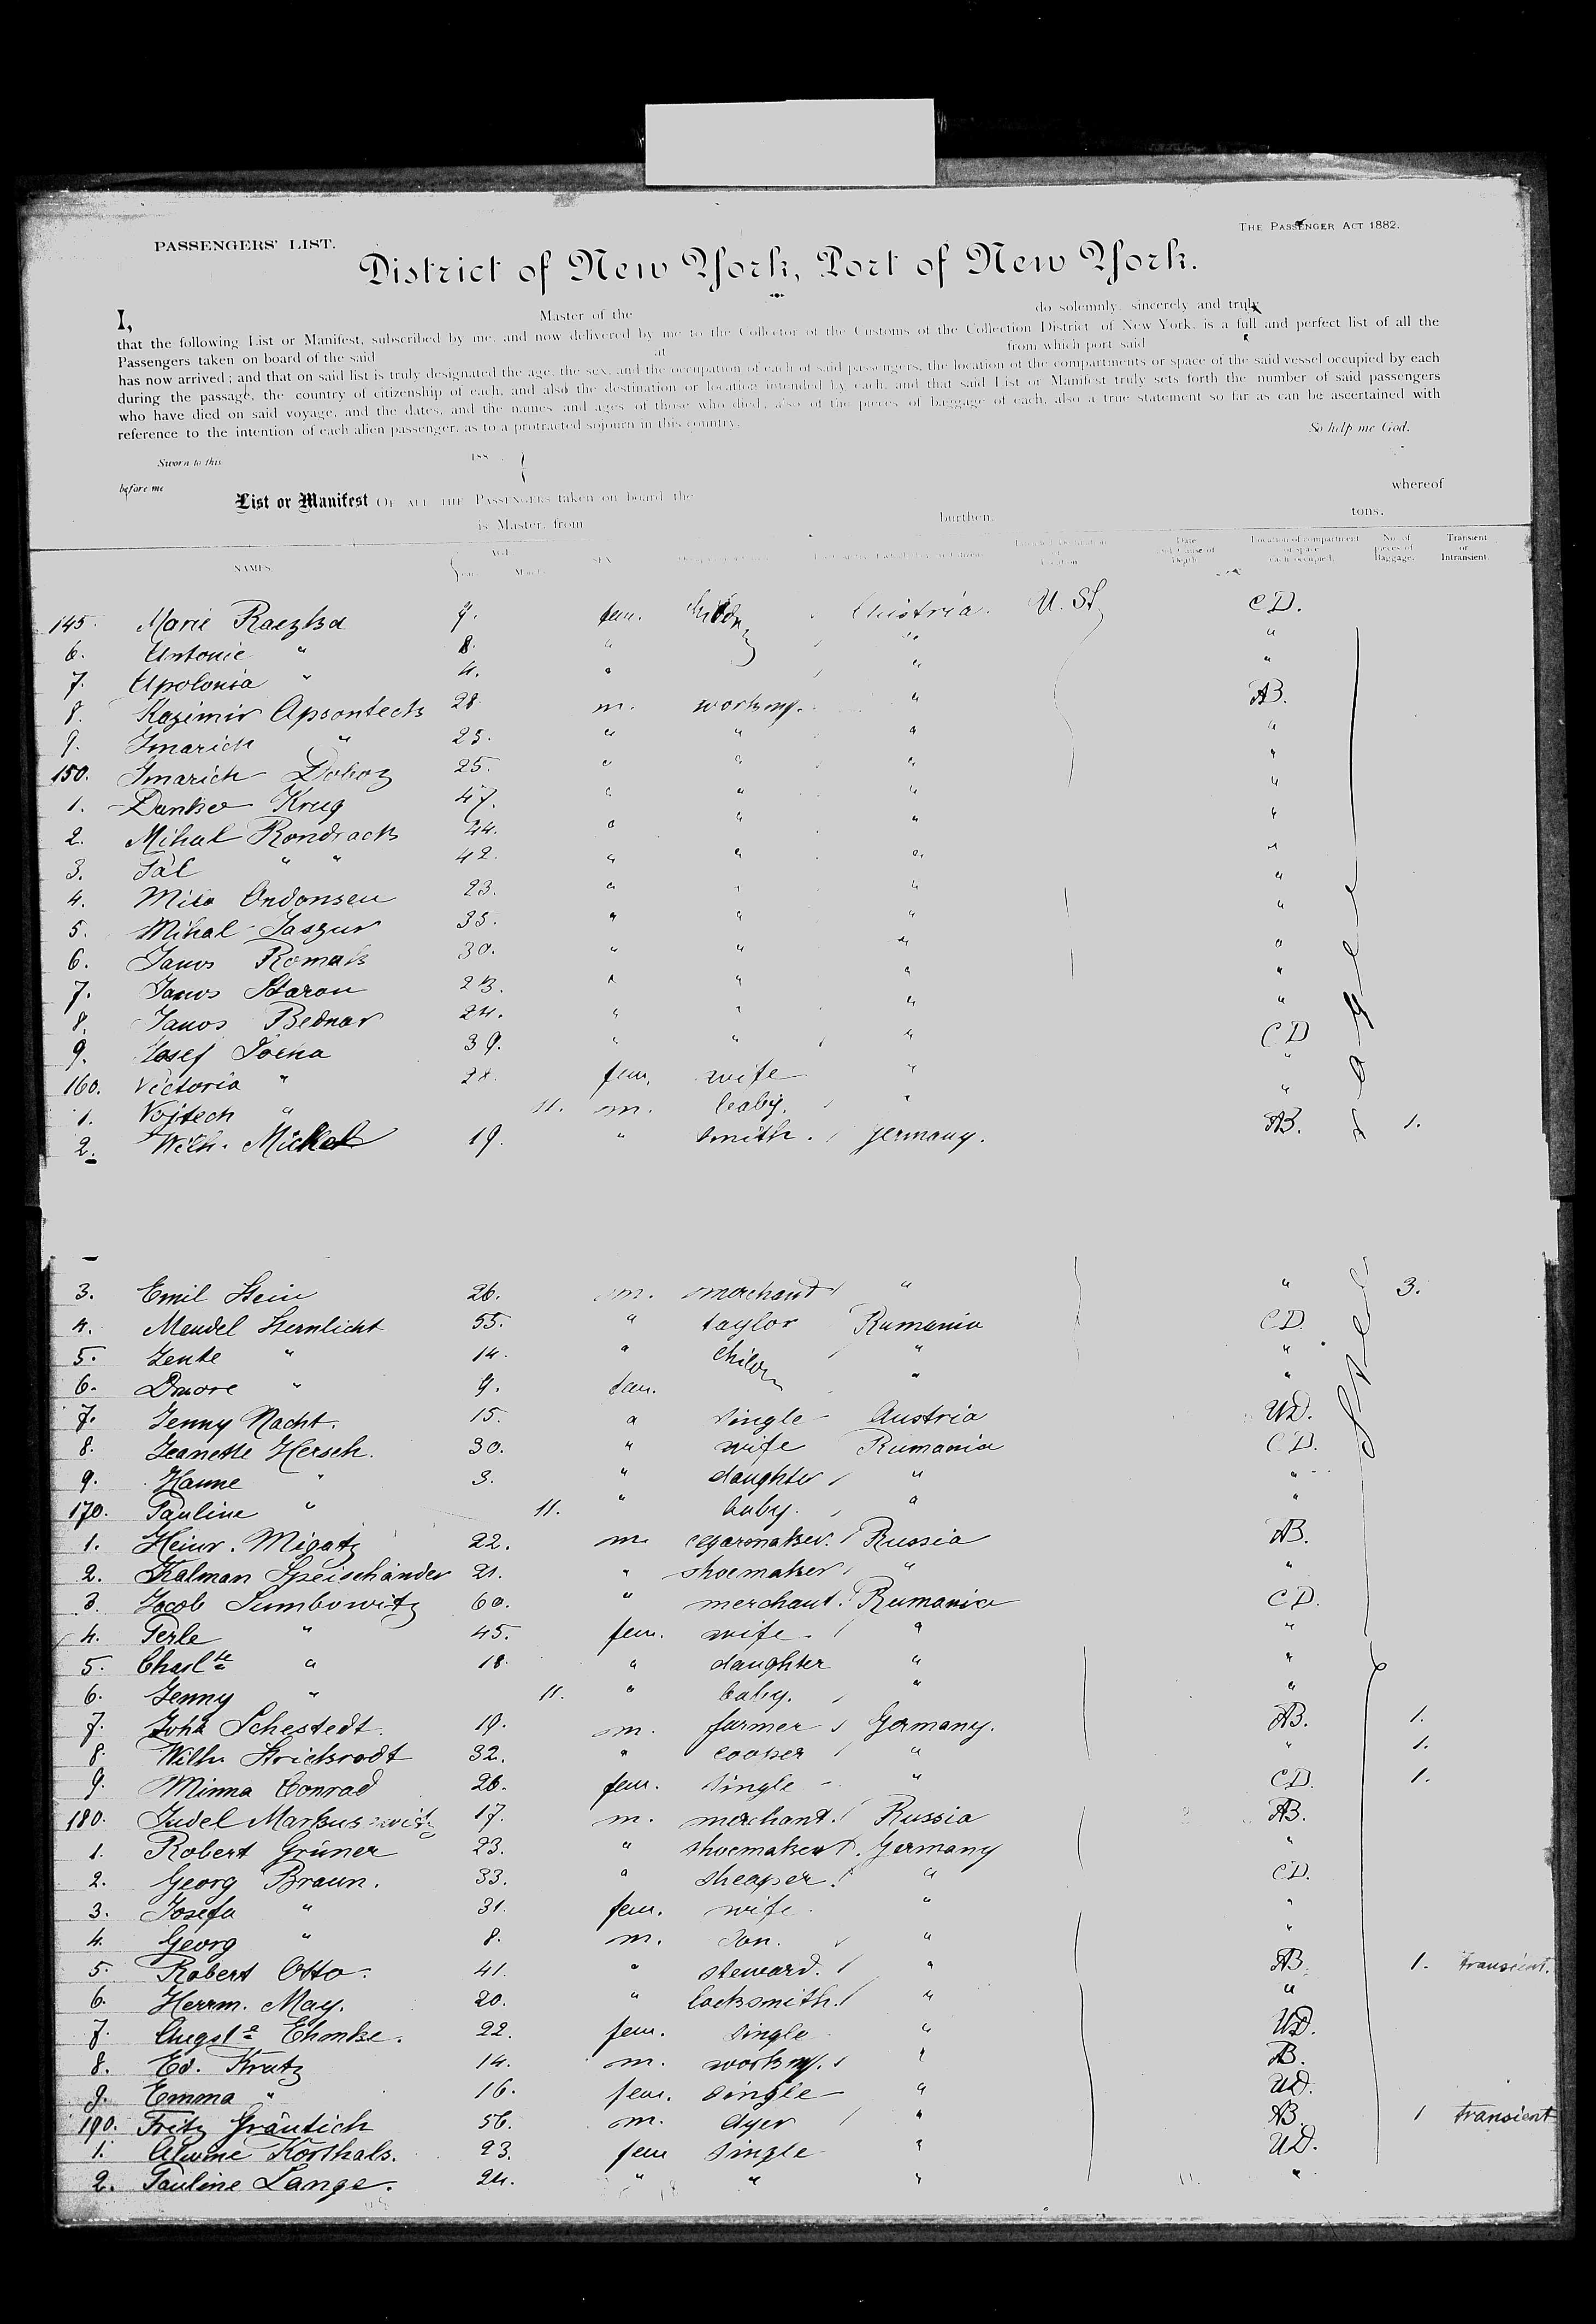 THE PASSENGER ACT 1882.
PASSENGERS' LIST.
District of New York, Port of New York.
I, Master of the do solemnly, sincerely and truly
that the following List or Manifest, subscribed by me, and now delivered by me to the Collector of the Customs of the Collection District of New York, is a full and perfect list of all the
Passengers taken on board of the said at from which port said
has now arrived; and that on said list is truly designated the age, the sex, and the occupation of each of said passengers, the location of the compartments or space of the said vessel occupied by each
during the passage, the country of citizenship of each, and also the destination or location intended by each, and that said List or Manifest truly sets forth the number of said passengers
who have died on said voyage, and the dates, and the names and ages of those who died, also of the pieces of baggage of each, also a true statement so far as can be ascertained with
reference to the intention of each alien passenger, as to a protracted sojourn in this country.
So help me God.
Sworn to this 188
before me
List or Manifest OF ALL THE PASSENGERS taken on board the whereof
is Master, from burthen, tons.
NAMES AGE Years Months SEX Date and Cause of Death Location of compartment or space each occupied. No. of pieces of Baggage. Transient or Intransient.
145. Marie Raczka 9. fem. Austria. U. St. CD.
6. Antonie " 8. " " "
7. Apolonia " 4. " " "
8. Kazimir Apsonteck 28 m. workmg. " AB.
9. Imarich " 25. " " " "
150. Imarich Doboz 25. " " " "
1. Danko Krug 47. " " " "
2. Mihal Rondrack 44. " " " "
3. Pal " " 42. " " " "
4. Miso Andonsen 23. " " " "
5. Mihal Jaszur 35. " " " "
6. Janos Romak 30. " " " "
7. Janos Staron 23. " " " "
8. Janos Bednar 24. " " " "
9. Josef 39. " " " CD
160. Victoria " 28. fem. wife " "
1. Vojtech " 11. m. baby. " "
2. Wilh. Mickel 19. " smith. Germany. AB. 1.
3. Emil Stein 26. m. merchant " " 3.
4. Mendel Sternlicht 55. " taylor Rumania CD.
5. " 14. " childn " "
6. " 9. fem. " "
7. Jenny Nacht. 15. " single Austria UD.
8. Jeanette Hersch. 30. " wife Rumania CD.
9. Hanne " 3. " daughter " "
170. Pauline " 11. " baby. " "
1. Heinr. Migatz 22. m. cigarmaker. Russia AB.
2. Kalman Speischänder 21. " shoemaker " "
3. Jacob Sumbowitz 60. " merchant. Rumania CD.
4. Perle " 45. fem. wife " "
5. Charlte " 18. " daughter " "
6. Jenny " 11. " baby. " "
7. Joh. Schestedt. 19. m. farmer Germany. AB. 1.
8. Wilh. Stricksrodt 32. " cooper " " 1.
9. Minna Conrad 26. fem. single " CD. 1.
180. Judel Markuswitz 17. m. merchant. Russia AB.
1. Robert Grüner 23. " shoemaker. Germany "
2. Georg Braun. 33. " " CD.
3. Josefa " 31. fem. wife " "
4. Georg " 8. m. son. " "
5. Robert Otto. 41. " steward. " AB. 1. transient.
6. Herrm. May. 20. " locksmith. " "
7. Augste Ehmke. 22. fem. single " UD.
8. Ed. Kratz 14. m. workmg. " AB.
9. Emma " 16. fem. single " UD.
190. Fritz Gräntich 56. m. dyer " AB. 1 transient
1. Alwine Korthals. 23. fem single " UD.
2. Pauline Lange. 24. " " " "
Steerage